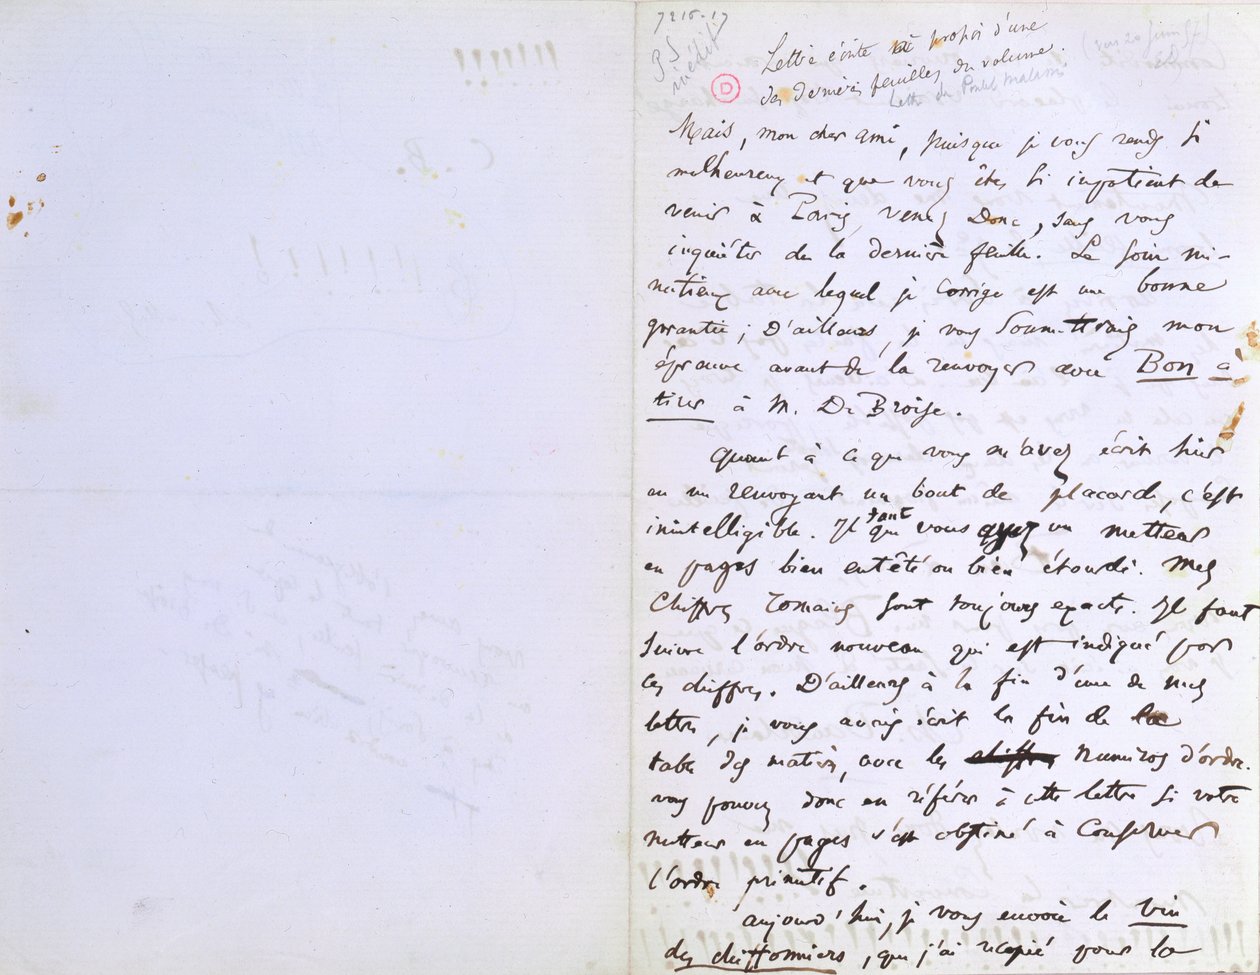 7216-17
PS
inédit
D
Lettre écrite à propos d'une
des dernières feuilles du volume.
Mais, mon cher ami, puisque je vous rends si
malheureux et que vous êtes si impatient de
venir à Paris, venez donc, sans vous
inquiéter de la dernière feuille. Le soin mi-
nutieux avec lequel je corrige est une bonne
garantie ; D'ailleurs, je vous soumettrais mon
épreuve avant de la renvoyer avec Bon à
tirer à M. De Broise.
Quant à ce que vous m'avez écrit hier
en me renvoyant un bout de placard, c'est
inintelligible. Il faut que vous ayez un metteur
en pages bien entêté ou bien étourdi. Mes
chiffres romains sont toujours exacts. Il faut
suivre l'ordre nouveau qui est indiqué par
ces chiffres. D'ailleurs à la fin d'une de mes
lettre, je vous avais écrit la fin de la
table des matières, avec les numéros d'ordre.
vous pouvez donc en référer à cette lettre si votre
metteur en pages s'est obstiné à conserver
l'ordre primitif.
aujourd'hui, je vous envoie le vin
des chiffonniers, que j'ai recopié pour la